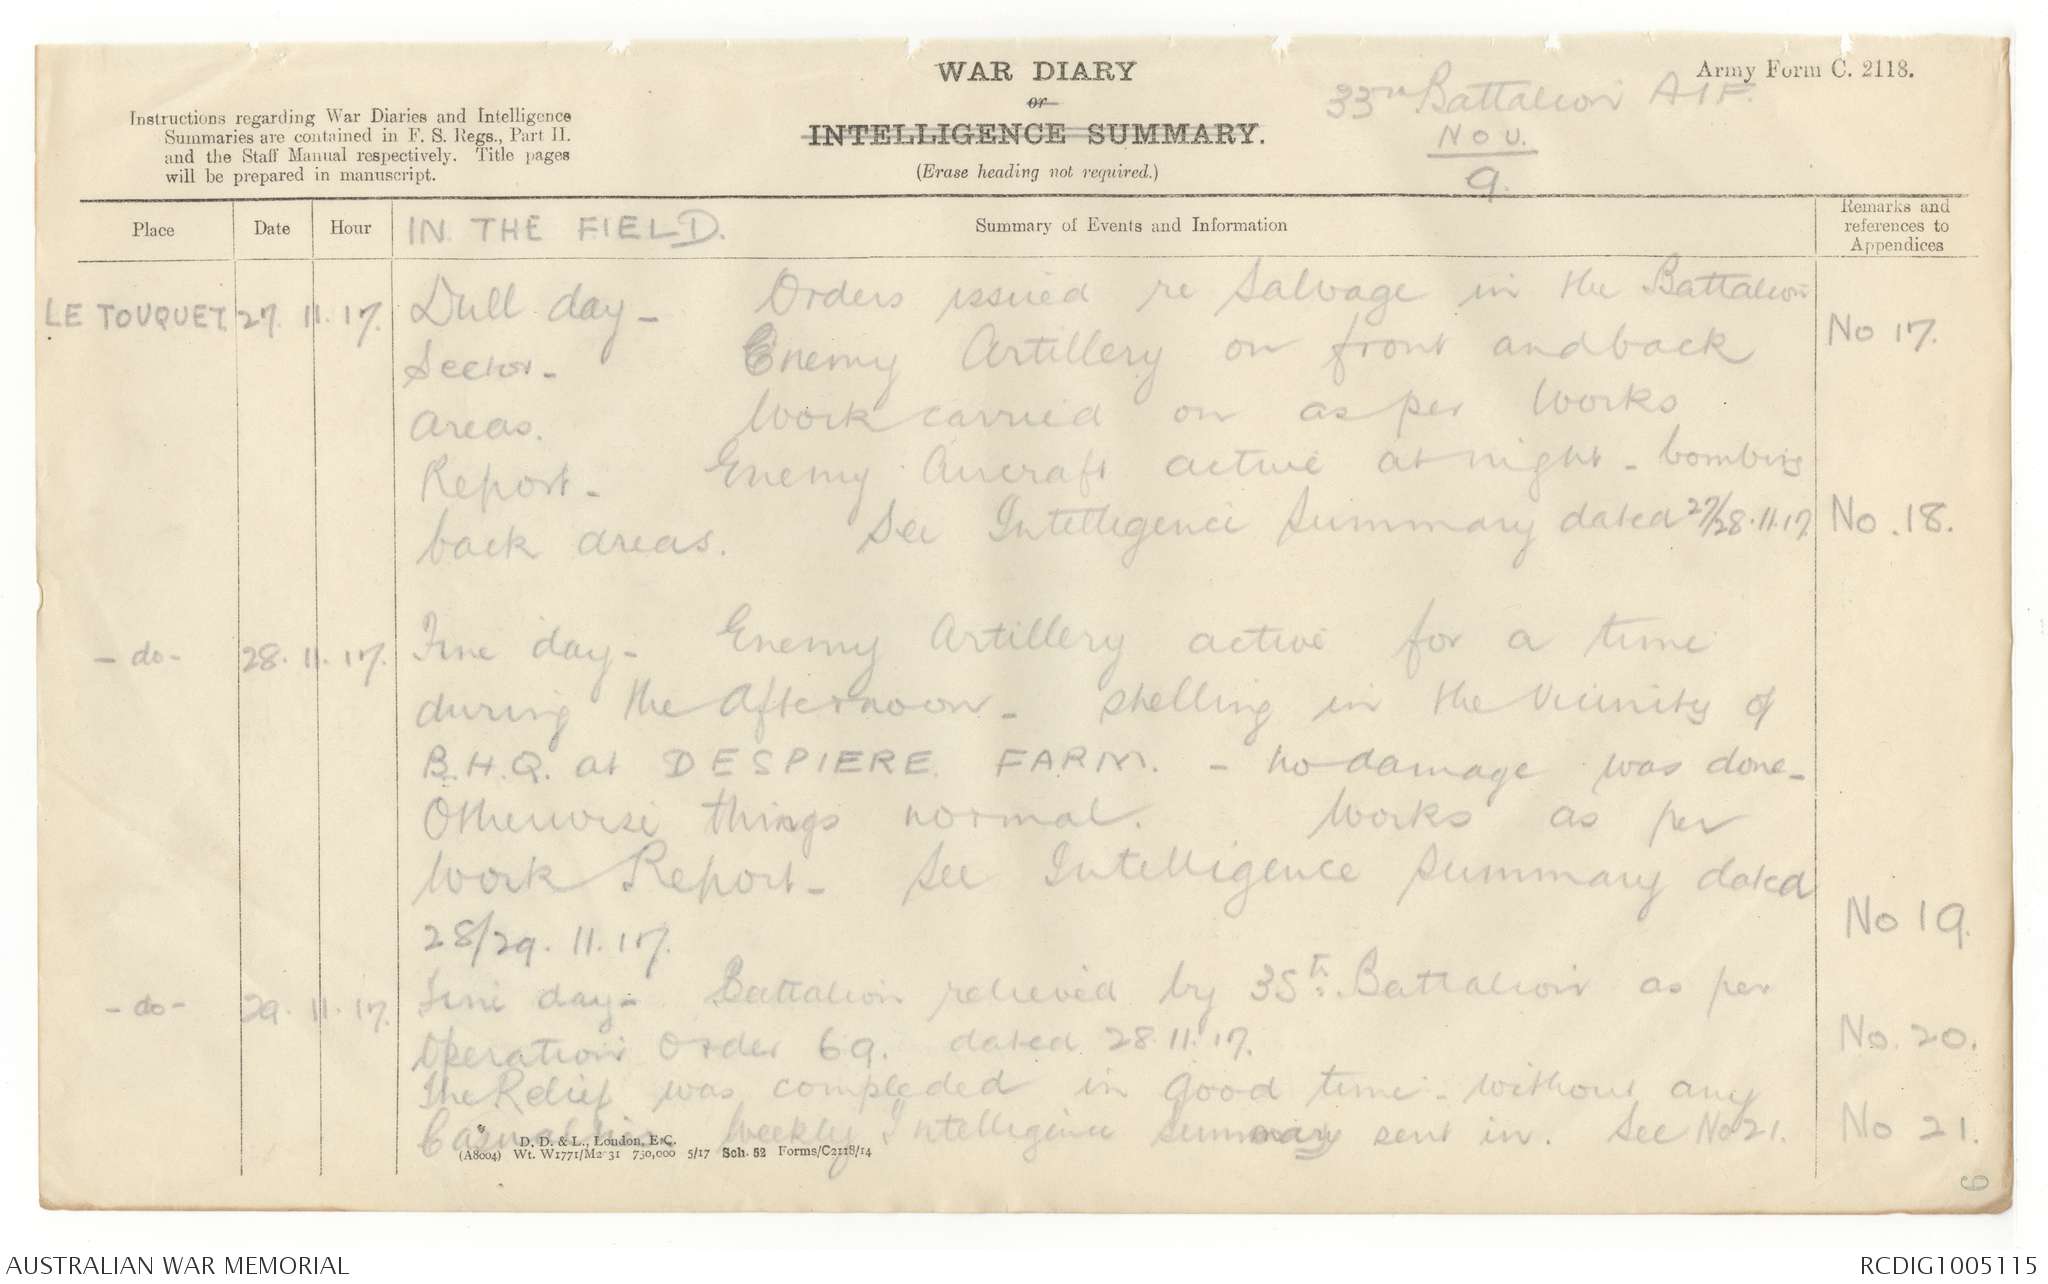 WAR DIARY
or
INTELLIGENCE SUMMARY.
(Erase heading not required.)
Army Form C. 2118.
33rd Battalion AIF.
NOV.
9.
Instructions regarding War Diaries and Intelligence
Summaries are contained in F. S. Regs., Part II.
and the Staff Manual respectively. Title pages
will be prepared in manuscript.
Place Date Hour IN THE FIELD. Summary of Events and Information Remarks and references to Appendices
LE TOUQUET 27. 11. 17. Dull day - Orders issued re Salvage in the Battalion
Sector - Enemy Artillery on front and back No 17.
areas. Work carried on as per Works
Report - Enemy Aircraft active at night - bombing
back areas. See Intelligence Summary dated 27/28.11.17. No. 18.
- do - 28. 11. 17. Fine day - Enemy Artillery active for a time
during the Afternoon - shelling in the vicinity of
B.H.Q. at DESPIERE FARM. - no damage was done -
Otherwise things normal. Works as per
Work Report - See Intelligence Summary dated
28/29. 11. 17. No 19.
- do - 29. 11. 17. Fine day - Battalion relieved by 35th. Battalion as per
Operation Order 69. dated 28.11.17. No. 20.
The Relief was compleded in good time - without any
Casualties Weekly Intelligence Summary sent in. See No 21. No 21.
D. D. & L., London, E.C.
(A8004) Wt. W1771/M2 31 750,000 5/17 Sch. 52 Forms/C2118/14
6
AUSTRALIAN WAR MEMORIAL
RCDIG1005115